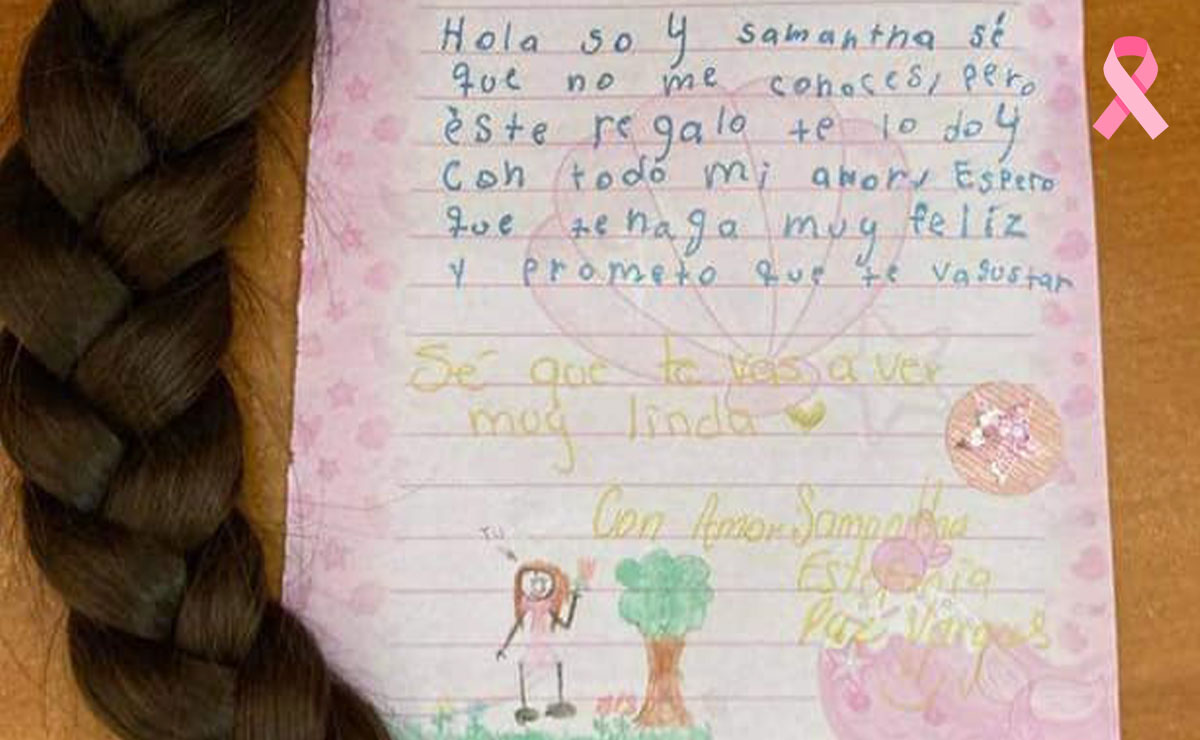 Hola soy samantha sé
que no me conoces, pero
èste regalo te lo doy
Con todo mi amor, Espero
que te haga muy feliz
y prometo que te va gustar
Sé que te vas a ver
muy linda
Con Amor Samantha
Estefania
Paz Vargas
TU